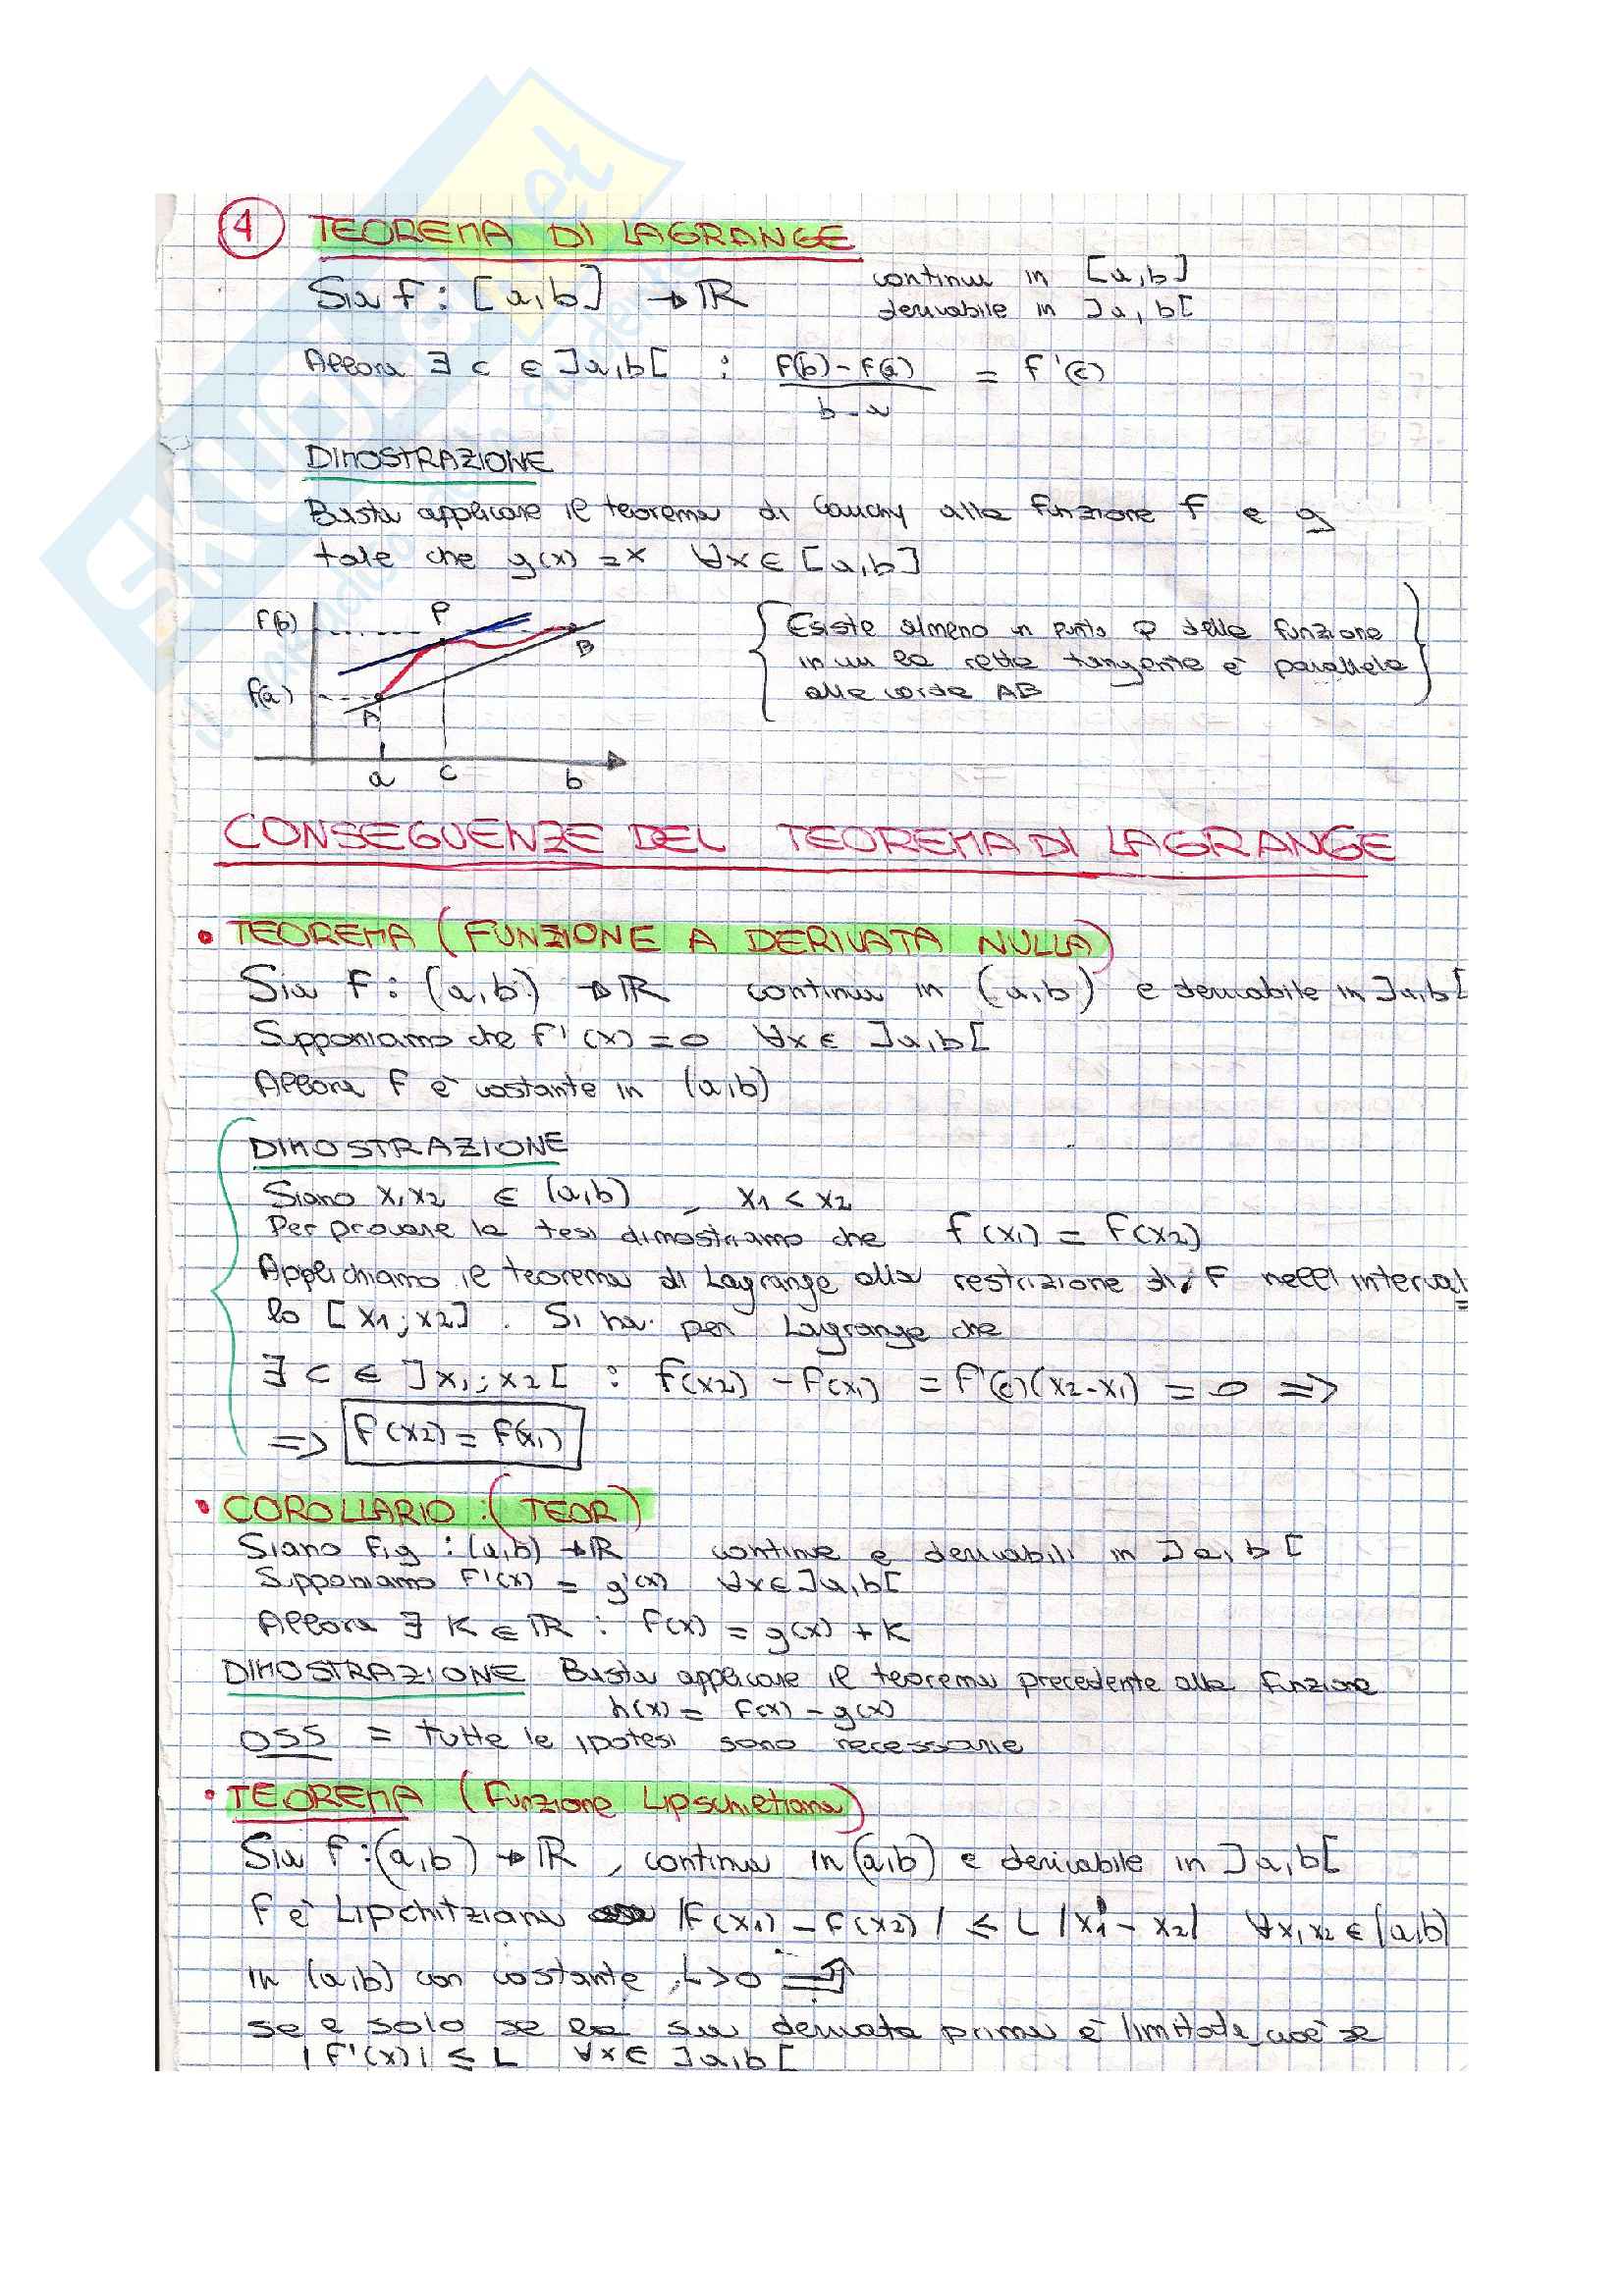 4 TEOREMA DI LAGRANGE
Sia f : [a,b] → ℝ continua in [a,b]
derivabile in ]a,b[
Allora ∃ c ∈ ]a,b[ : f(b)-f(a) / b-a = f'(c)
DIMOSTRAZIONE
Basta applicare il teorema di Cauchy alla funzione f e g
tale che g(x) = x ∀x ∈ [a,b]
f(b) P B
f(a) A
a c b
Esiste almeno un punto P della funzione
in cui la retta tangente è parallela
alla corda AB
CONSEGUENZE DEL TEOREMA DI LAGRANGE
• TEOREMA (FUNZIONE A DERIVATA NULLA)
Sia f : (a,b) → ℝ continua in (a,b) e derivabile in ]a,b[
Supponiamo che f'(x) = 0 ∀x ∈ ]a,b[
Allora f è costante in (a,b)
DIMOSTRAZIONE
Siano x1x2 ∈ (a,b) , x1 < x2
Per provare la tesi dimostriamo che f(x1) = f(x2)
Applichiamo il teorema di Lagrange alla restrizione di f nell'interval
lo [x1;x2]. Si ha per Lagrange che
∃ c ∈ ]x1;x2[ : f(x2) - f(x1) = f'(c)(x2-x1) = 0 =>
=> f(x2) = f(x1)
• COROLLARIO : (TEOR)
Siano f,g : (a,b) → ℝ continue e derivabili in ]a,b[
Supponiamo f'(x) = g'(x) ∀x ∈ ]a,b[
Allora ∃ K ∈ ℝ : f(x) = g(x) + K
DIMOSTRAZIONE Basta applicare il teorema precedente alla funzione
h(x) = f(x) - g(x)
OSS = tutte le ipotesi sono necessarie
• TEOREMA (Funzione Lipschietiana)
Sia f : (a,b) → ℝ , continua in (a,b) e derivabile in ]a,b[
f è Lipchitziana |f(x1) - f(x2)| ≤ L |x1 - x2| ∀x1x2 ∈ (a,b)
in (a,b) con costante L>0
se e solo se la sua derivata prima è limitata, cioè se
|f'(x)| ≤ L ∀x ∈ ]a,b[